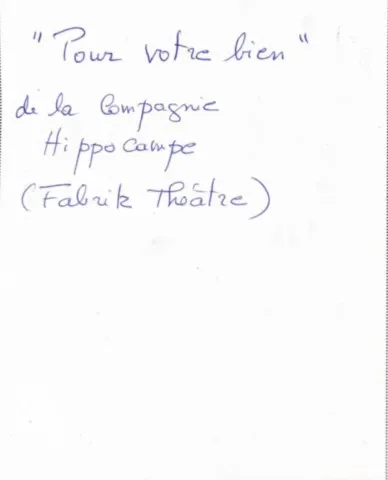 "Pour votre bien"
de la Compagnie
Hippocampe
(Fabrik Théâtre)